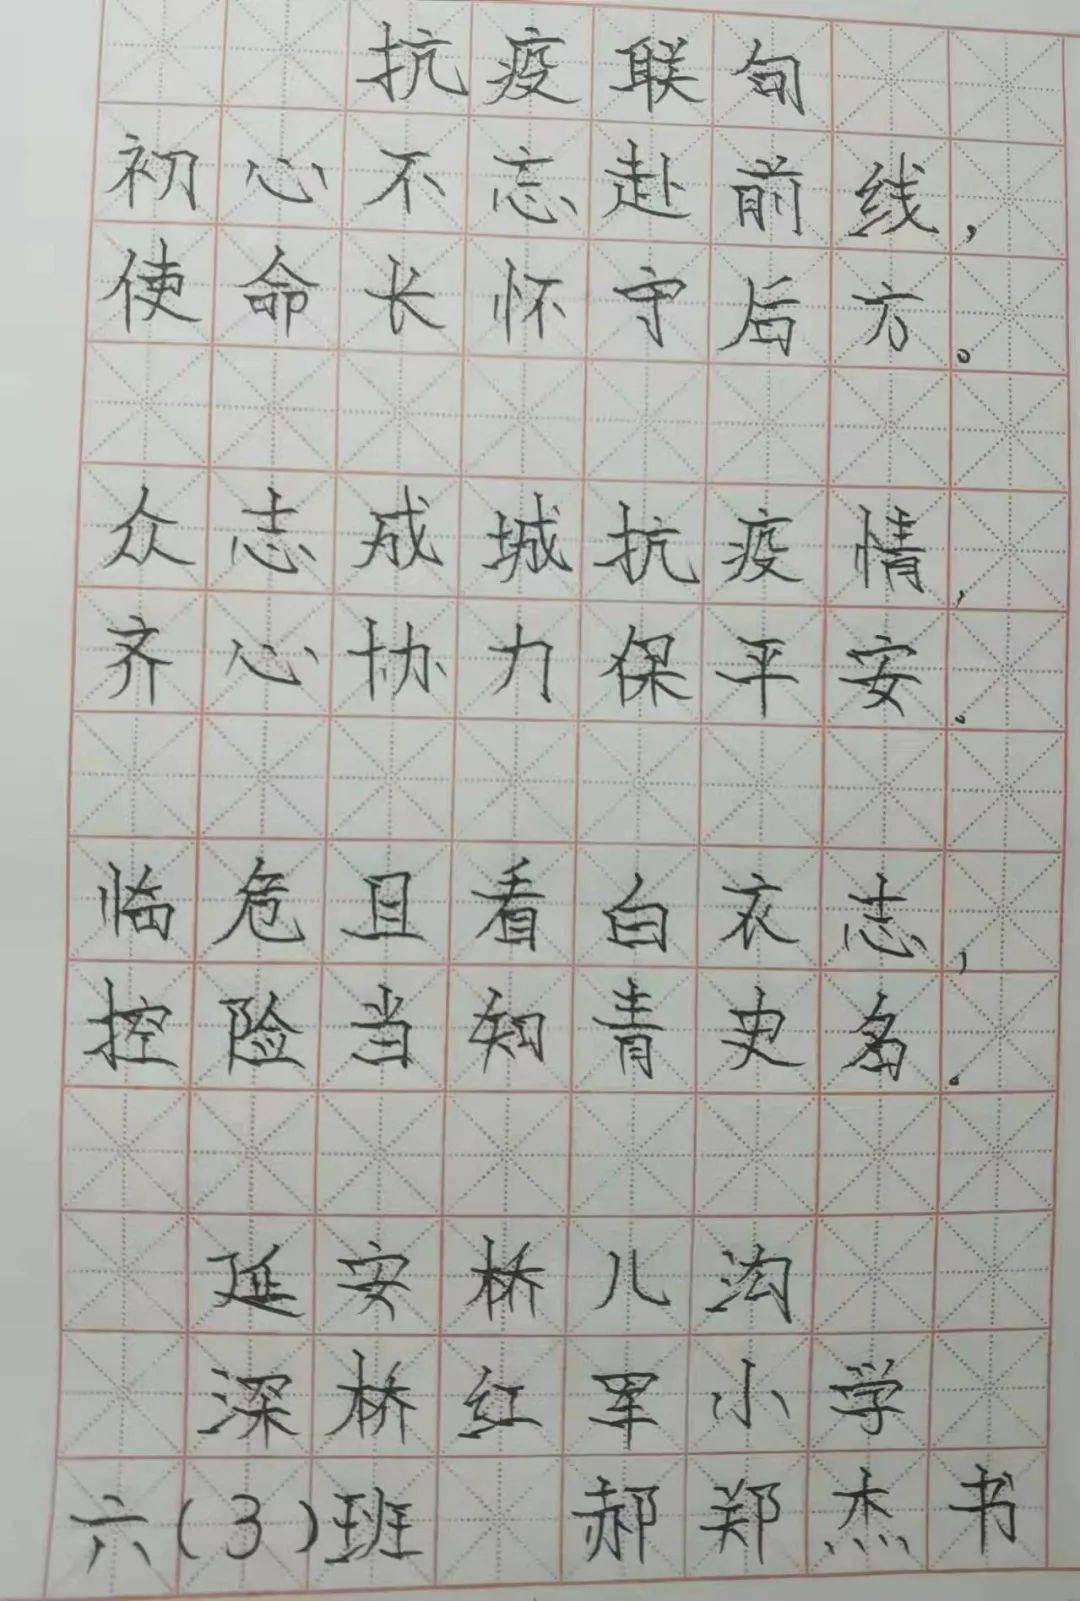 抗疫联句
初心不忘赴前线，
使命长怀守后方。
众志成城抗疫情，
齐心协力保平安。
临危且看白衣志，
控险当知青史名。
延安桥儿沟
深桥红军小学
六(3)班 郝郑杰书